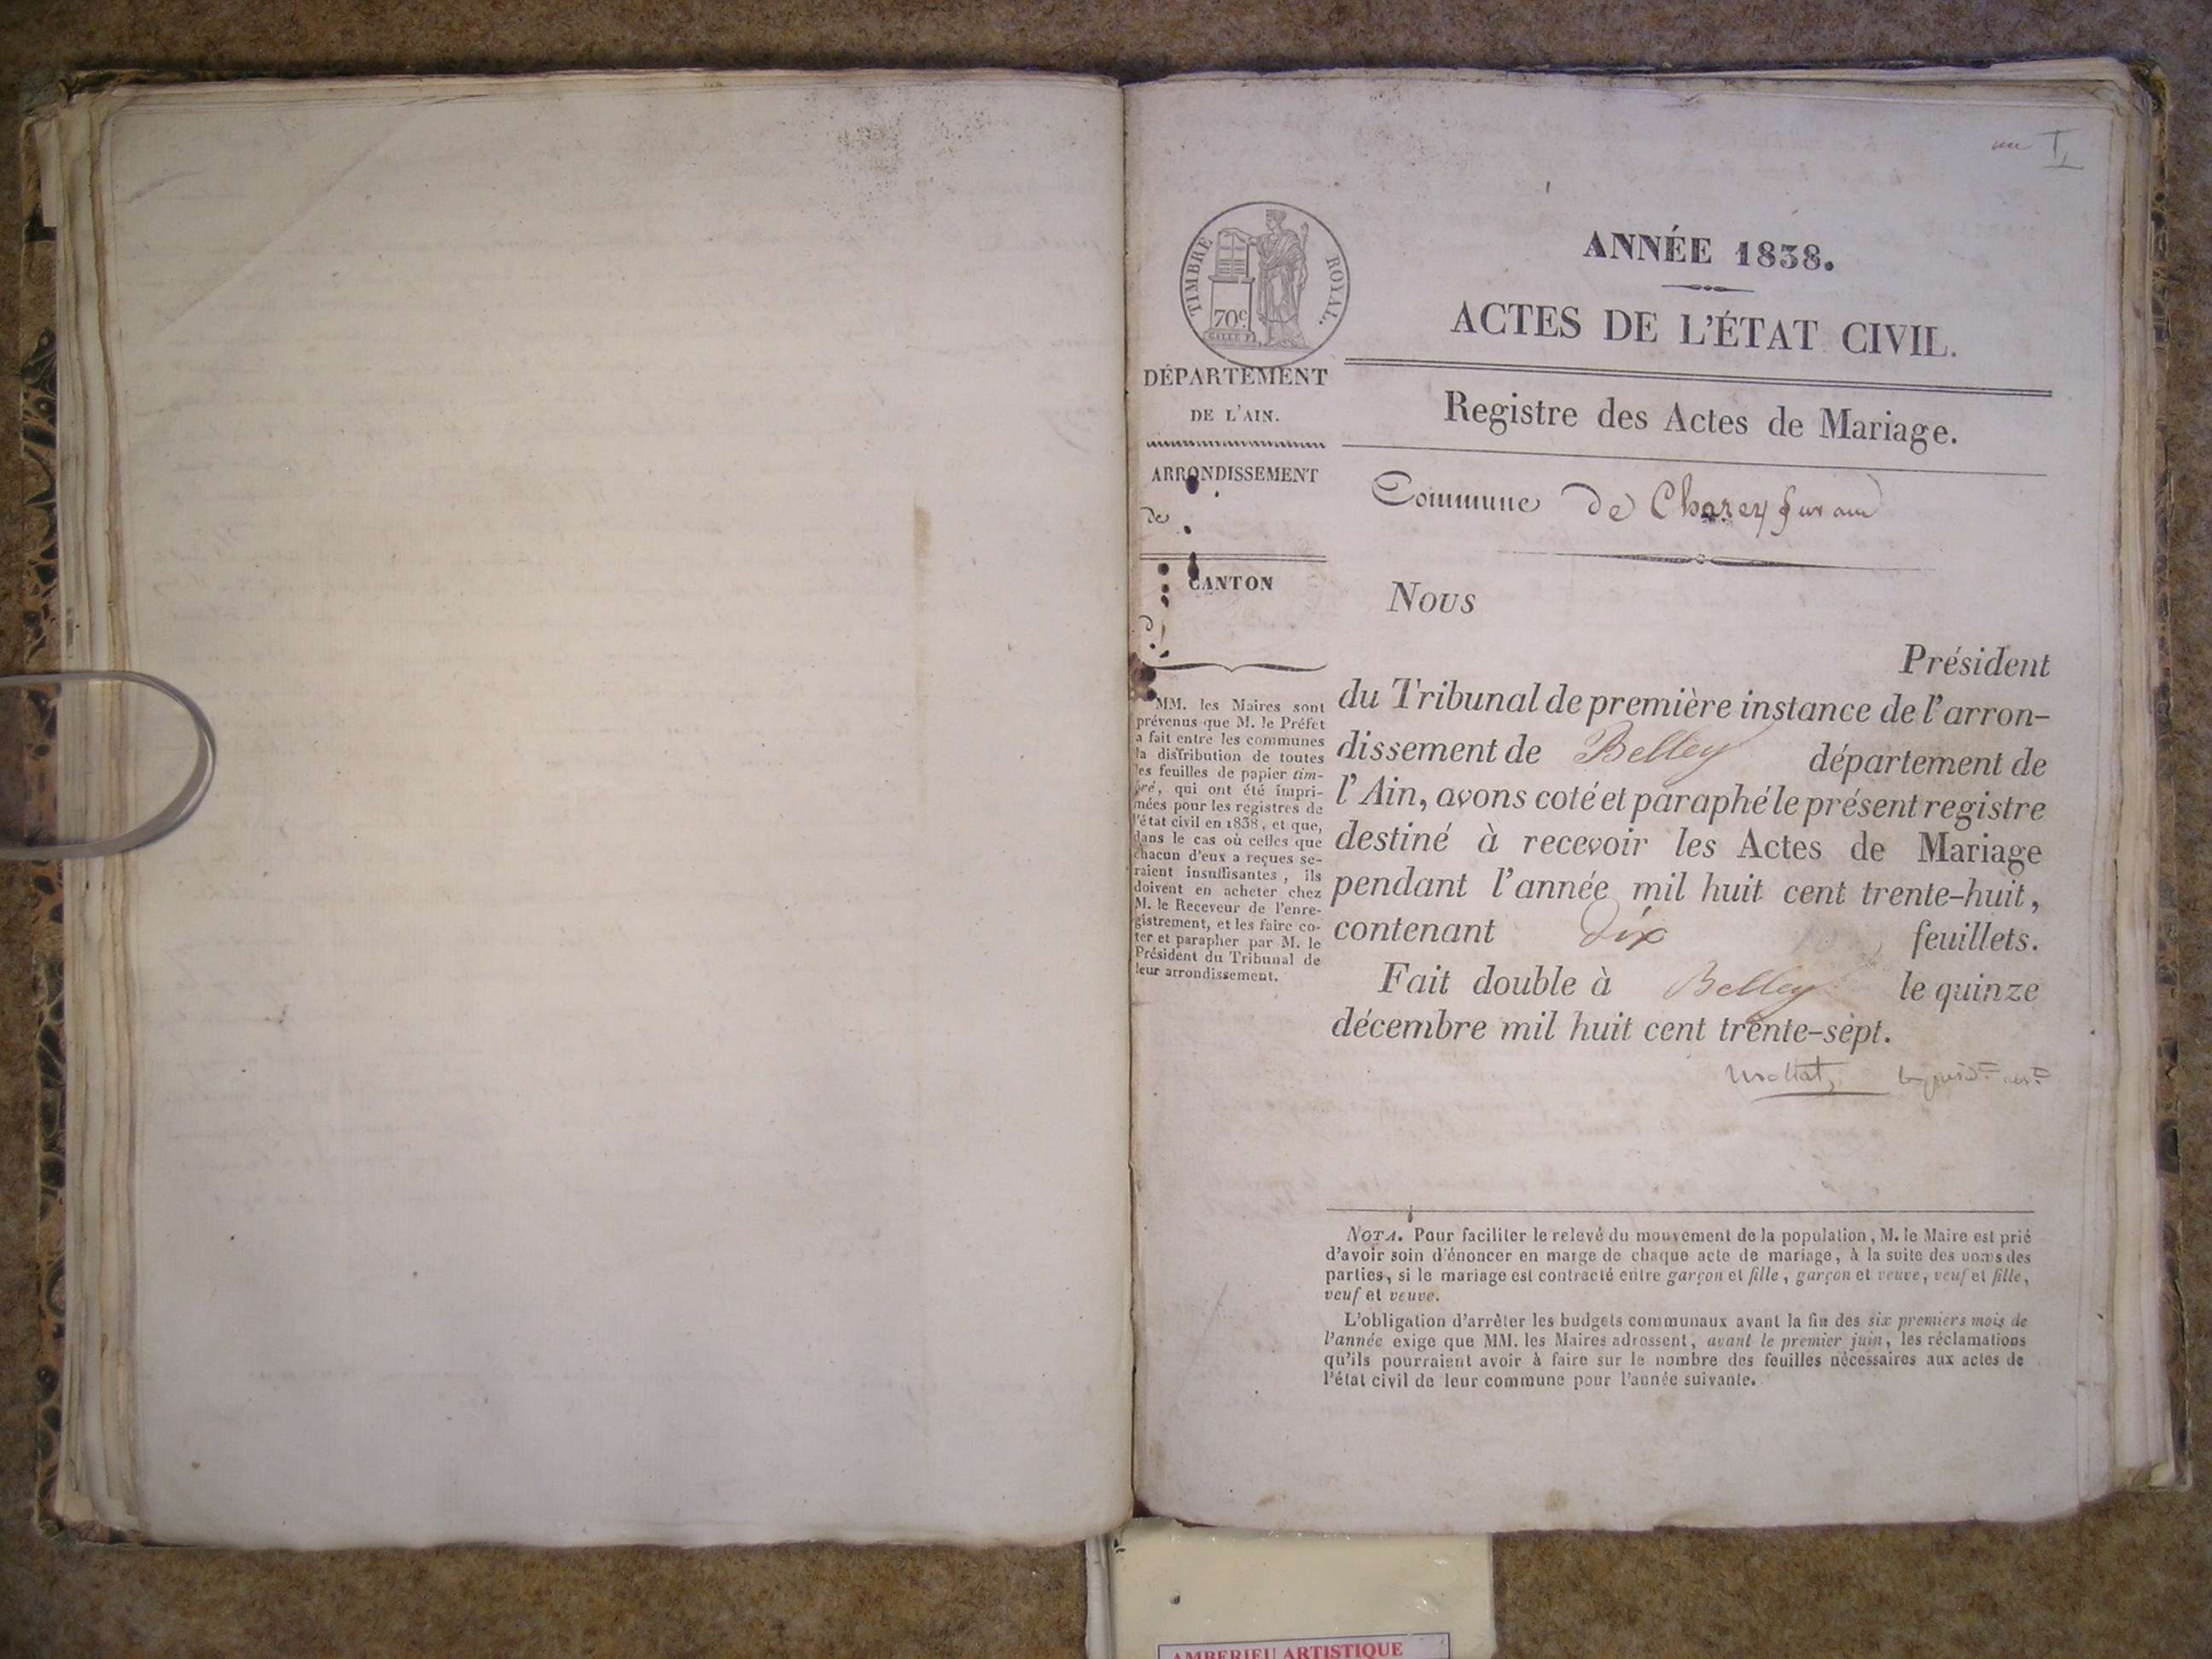 un I
TIMBRE ROYAL.
70c.
ANNÉE 1838.
ACTES DE L'ÉTAT CIVIL.
DÉPARTEMENT
DE L'AIN.
ARRONDISSEMENT
de
CANTON
d
MM. les Maires sont
prévenus que M. le Préfet
a fait entre les communes
la distribution de toutes
les feuilles de papier tim-
bré, qui ont été impri-
mées pour les registres de
l'état civil en 1838, et que,
dans le cas où celles que
chacun d'eux a reçues se-
raient insuffisantes, ils
doivent en acheter chez
M. le Receveur de l'enre-
gistrement, et les faire co-
ter et parapher par M. le
Président du Tribunal de
leur arrondissement.
Registre des Actes de Mariage.
Commune de Chazey sur ain
Nous
Président
du Tribunal de première instance de l'arron-
dissement de Belley département de
l'Ain, avons coté et paraphé le présent registre
destiné à recevoir les Actes de Mariage
pendant l'année mil huit cent trente-huit,
contenant dix feuillets.
Fait double à Belley le quinze
décembre mil huit cent trente-sept.
NOTA. Pour faciliter le relevé du mouvement de la population, M. le Maire est prié
d'avoir soin d'énoncer en marge de chaque acte de mariage, à la suite des noms des
parties, si le mariage est contracté entre garçon et fille, garçon et veuve, veuf et fille,
veuf et veuve.
L'obligation d'arrêter les budgets communaux avant la fin des six premiers mois de
l'année exige que MM. les Maires adressent, avant le premier juin, les réclamations
qu'ils pourraient avoir à faire sur le nombre des feuilles nécessaires aux actes de
l'état civil de leur commune pour l'année suivante.
AMBERIEU ARTISTIQUE